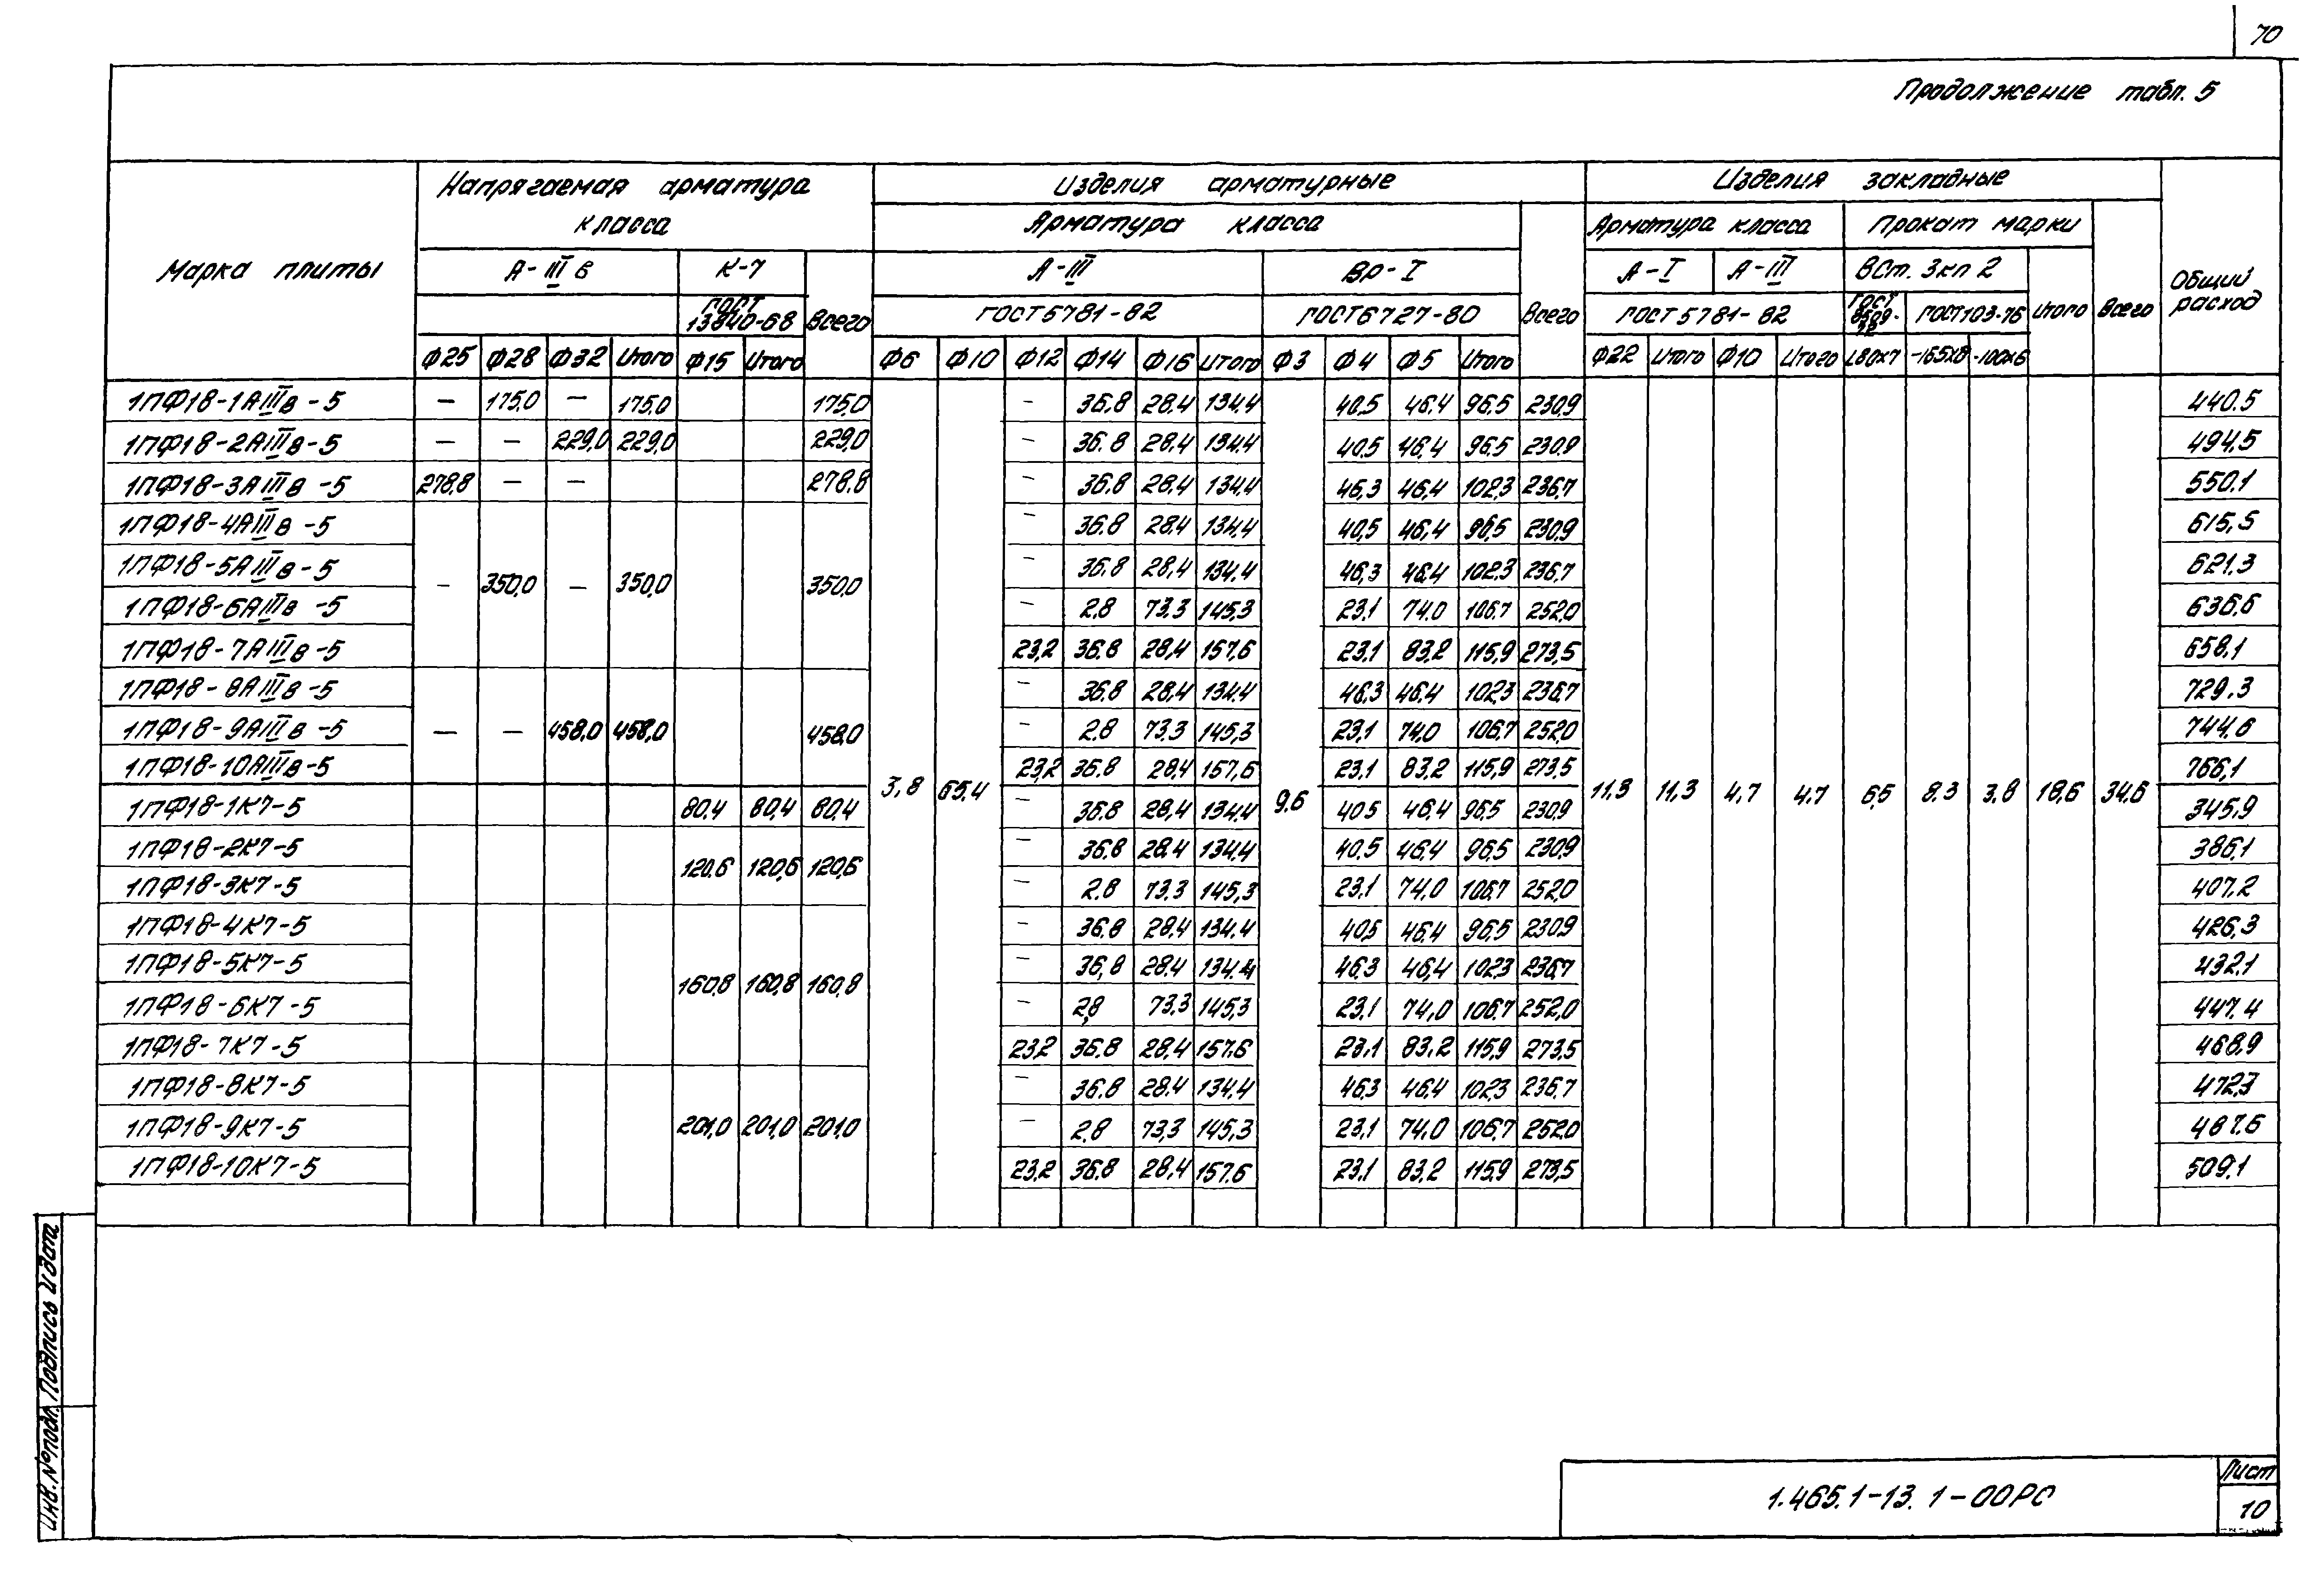 70
Продолжение табл. 5
Марка плиты
Напрягаемая арматура класса
Изделия арматурные
Изделия закладные
Общий расход
Арматура класса
Всего
Арматура класса
Прокат марки
Всего
А-IIIв
К-7
Всего
А-III
Вр-I
А-I
А-III
ВСт. 3кп 2
Итого
ГОСТ 13840-68
ГОСТ 5781-82
ГОСТ 6727-80
ГОСТ 5781-82
ГОСТ 8509-72
ГОСТ 103-76
Ф25 Ф28 Ф32 Итого Ф15 Итого Ф6 Ф10 Ф12 Ф14 Ф16 Итого Ф3 Ф4 Ф5 Итого Ф22 Итого Ф10 Итого L80х7 -165х8 -100х6
1ПФ18-1АIIIв-5 — 175,0 — 175,0 175,0 — 36.8 28.4 134.4 40,5 46,4 96,5 230,9 440.5
1ПФ18-2АIIIв-5 — — 229,0 229,0 229,0 — 36.8 28,4 134,4 40,5 46,4 96,5 230,9 494,5
1ПФ18-3АIIIв-5 278,8 — — 278.8 — 36.8 28,4 134,4 46,3 46,4 102,3 236,7 550.1
1ПФ18-4АIIIв-5 — 36.8 28,4 134,4 40,5 46,4 96,5 230,9 615,5
1ПФ18-5АIIIв-5 — 36.8 28,4 134,4 46,3 46,4 102,3 236,7 621.3
— 350,0 — 350,0 350,0
1ПФ18-6АIIIв-5 — 2.8 73,3 145,3 23,1 74.0 106,7 252,0 636.6
1ПФ18-7АIIIв-5 23,2 36.8 28,4 157,6 23,1 83,2 115,9 273,5 658,1
1ПФ18-8АIIIв-5 — 36.8 28,4 134,4 46,3 46,4 102,3 236,7 729,3
1ПФ18-9АIIIв-5 — — 458,0 458,0 458,0 — 2.8 73.3 145,3 23,1 74,0 106,7 252,0 744,6
1ПФ18-10АIIIв-5 23,2 36.8 28,4 157,6 23,1 83,2 115,9 273,5 766,1
3,8 65,4 9,6 11,3 11,3 4,7 4,7 6,5 8.3 3,8 18,6 34,6
1ПФ18-1К7-5 80,4 80,4 80,4 — 36.8 28,4 134,4 40,5 46,4 96,5 230,9 345,9
1ПФ18-2К7-5 — 36.8 28,4 134,4 40,5 46,4 96,5 230,9 386,1
120,6 120,6 120,6
1ПФ18-3К7-5 — 2.8 73,3 145,3 23,1 74,0 106,7 252,0 407,2
1ПФ18-4К7-5 — 36.8 28,4 134,4 40,5 46,4 96,5 230,9 426,3
1ПФ18-5К7-5 — 36,8 28,4 134.4 46,3 46,4 102,3 236,7 432,1
160,8 160,8 160,8
1ПФ18-6К7-5 — 2,8 73,3 145,3 23,1 74,0 106,7 252,0 447.4
1ПФ18-7К7-5 23,2 36.8 28,4 157,6 23,1 83,2 115,9 273,5 468,9
1ПФ18-8К7-5 — 36.8 28,4 134,4 46,3 46,4 102,3 236,7 472,3
1ПФ18-9К7-5 201,0 201,0 201,0 — 2.8 73,3 145,3 23,1 74,0 106,7 252,0 487.6
1ПФ18-10К7-5 23,2 36,8 28,4 157.6 23,1 83,2 115,9 273,5 509,1
Инв. № подл. Подпись и дата
1.465.1-13. 1-00РС
Лист
10